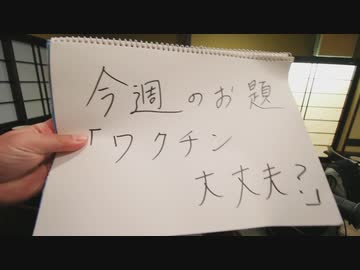 今週のお題
「ワクチン
大丈夫?」